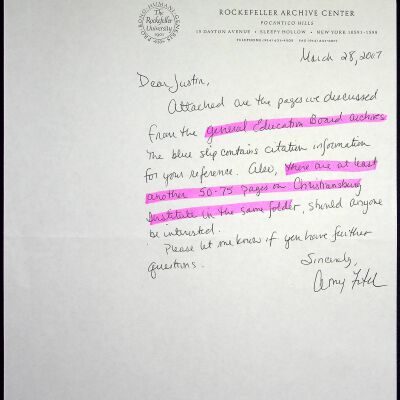 PRO BONO HUMANI GENERIS
The
Rockefeller
University
1901
ROCKEFELLER ARCHIVE CENTER
POCANTICO HILLS
15 DAYTON AVENUE • SLEEPY HOLLOW • NEW YORK 10591-1598
TELEPHONE (914) 631-4505 FAX (914) 631-6017
March 28, 2007
Dear Justin,
Attached are the pages we discussed
from the General Education Board archives
The blue slip contains citation information
for your reference. Also, there are at least
another 50-75 pages on Christiansburg
Institute in the same folder, should anyone
be interested.
Please let me know if you have further
questions.
Sincerely,
Amy Fitch